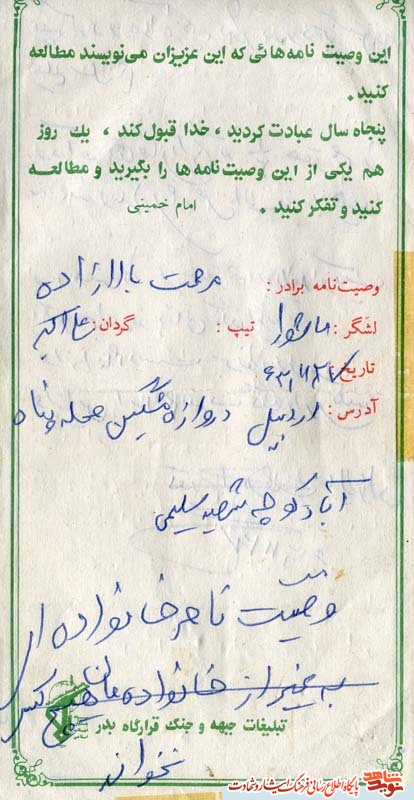 این وصیت نامه‌هائی که این عزیزان می‌نویسند مطالعه
کنید.
پنجاه سال عبادت کردید، خدا قبول کند، یك روز
هم یکی از این وصیت‌نامه ها را بگیرید و مطالعه
کنید و تفکر کنید. امام خمینی
وصیت‌نامه برادر: رحمت بالازاده
لشگر: عاشورا تیپ: گردان: علی اکبر
تاریخ:
آدرس: اردبیل دروازه مشگین محله پناه
آباد کوچه شهید سلیمی
وصیت نامه خانواده
به غیر از خانواده‌مان هیچ کس
تبلیغات جبهه و جنگ قرارگاه بدر
نخواند
نوید شاهد پایگاه اطلاع رسانی فرهنگ ایثار و شهادت